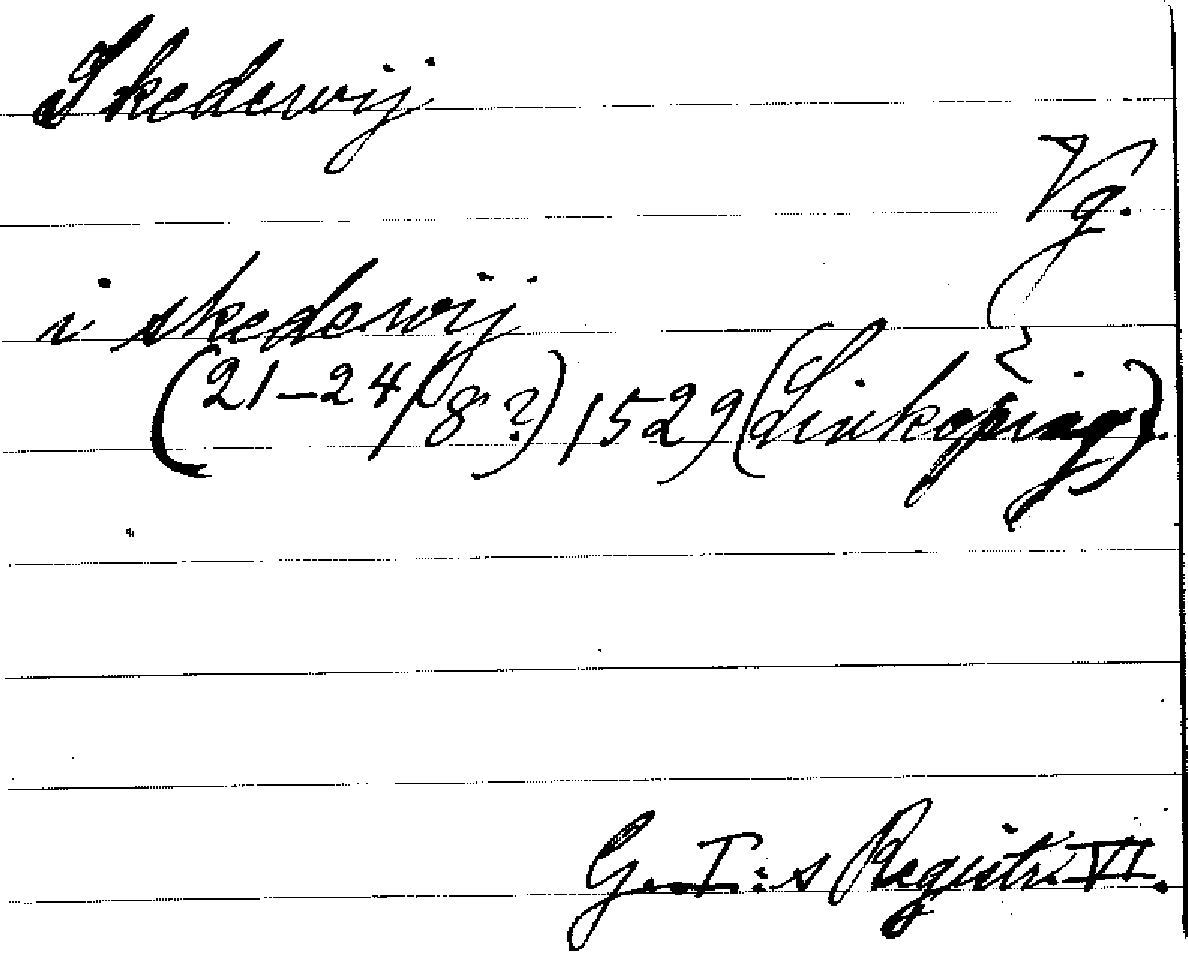 Skedewij
Vg.
i skedewij
(21–24/8?) 1529 (Linköping).
G. I:s Registr. VI.